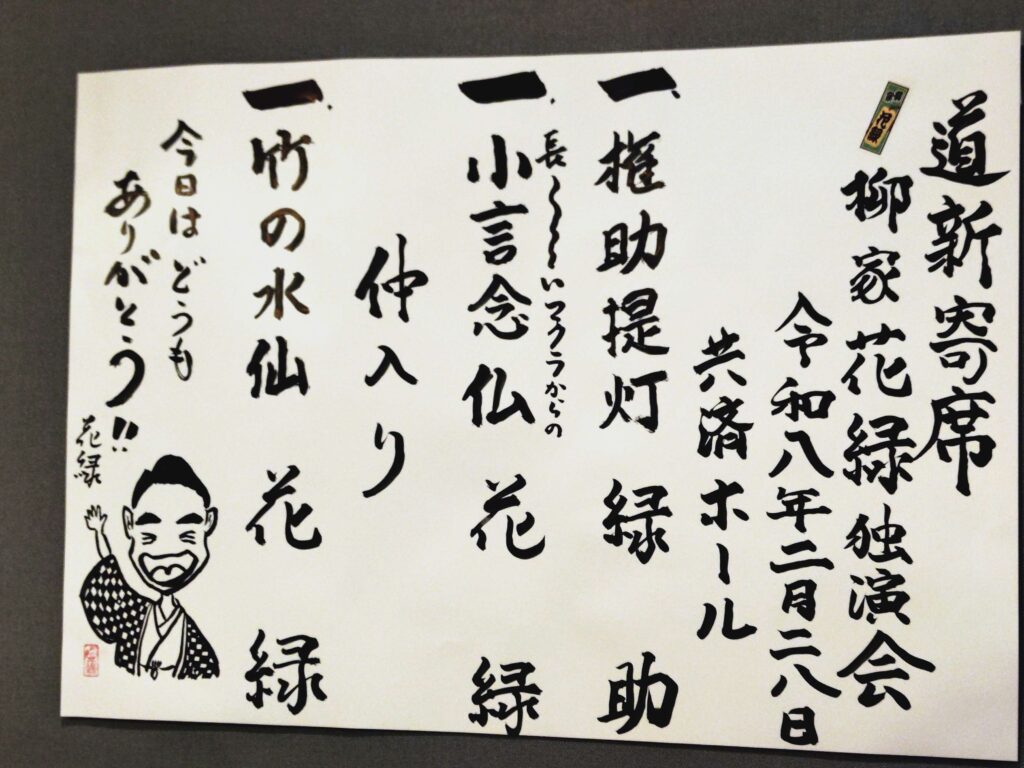 道新寄席
柳家花緑独演会
令和八年二月二八日
共済ホール
一、権助提灯 緑助
長〜〜〜いマクラからの
一、小言念仏 花緑
仲入り
一、竹の水仙 花緑
今日はどうも
ありがとう!!
花緑